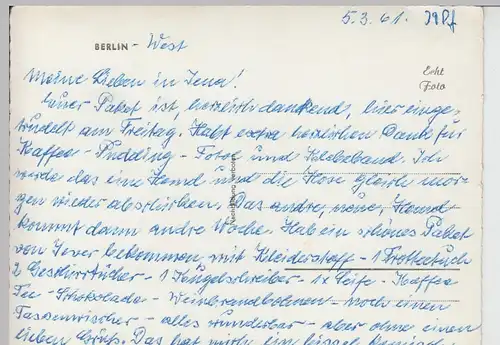 5.3.61. 39Pf
BERLIN - West
Echt
Foto
Meine Lieben in Jena!
Euer Paket ist, herzlich dankend, hier einge-
trudelt am Freitag. Habt extra herzlichen Dank für
Kaffee - Pudding - Fotos und Klebeband. Ich
werde das eine Hemd und die Hose gleich mor-
gen wieder abschicken. Das andre, neue, Hemd
kommt dann andre Woche. Hab ein schönes Paket
von Jever bekommen mit Kleiderstoff - 1 Frottertuch
2 Geschirrtücher - 1 Kugelschreiber - 1x Seife - Kaffee
Tee - Schokolade - Weinbrandbohnen - noch einen
Tassenwischer - alles wunderbar - aber ohne einen
lieben Gruss. Das hat mich ein bissel komisch